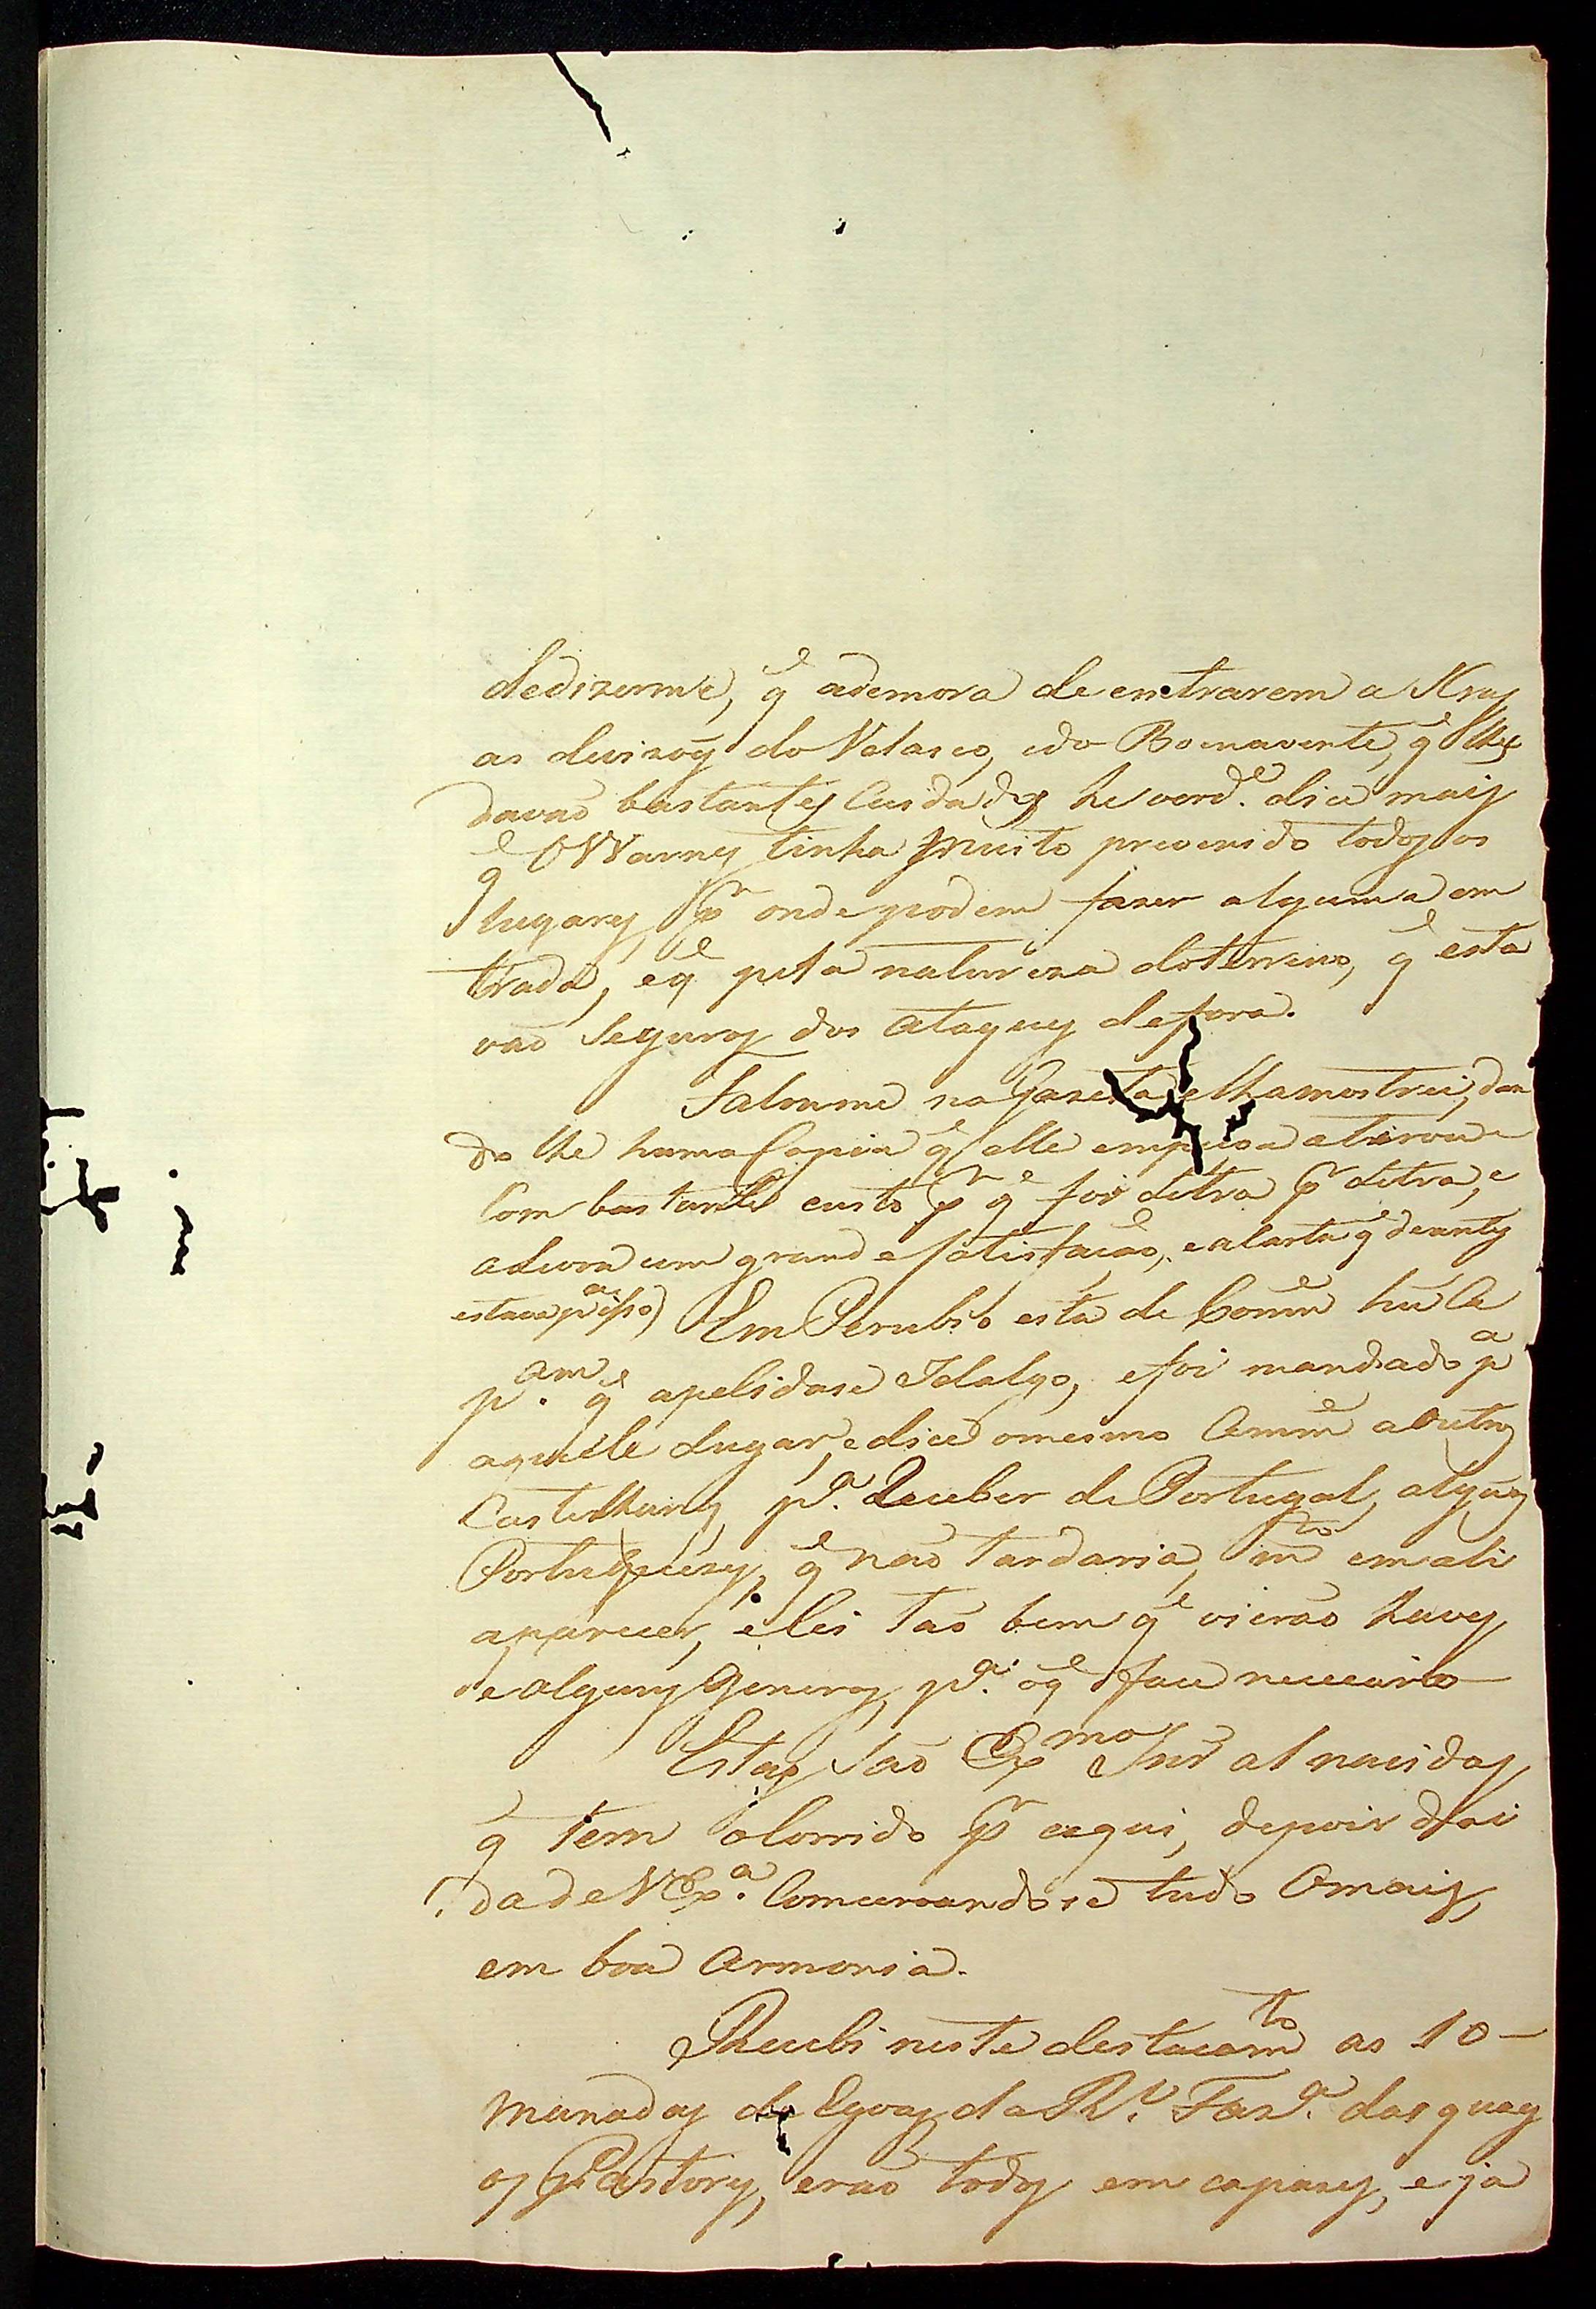 dedizerme, q̃ ademora de entrarem a
as devizoẽs do Velasco, edo Boenavente, q̃ lhes
davaõ bastantes Cuidados he verd.e dice mais
q̃ OWarnes tinha muito prevenido todos os
lugares, pr onde podem fazer alguma em
trada, eq̃ pela naturesa doterreno, q̃ esta
vaõ Seguros dos ataques defora.
Faloume na Gazeta elhamostrei, dan
do lhe huma Copia q̃ elle empeçoa atirou
Com bastante custo pr q̃ foi Letra pr Letra, e
aLevou com grande satisfacaõ, eaCarta q̃ deantes
estava pa isso) Em Perubio está de Comme hũ Ca
p.am q̃ apelidase Idalgo, efoi mandado pa
aquele Lugar, edice omesmo Comme aoutros
Castelhanos, p.a Receber de Portugal, alguns
Portuguezes, q̃ naõ tardaria, mto em ali
aparecer, eles taõ bem q̃ vieraõ
e alguns Generos, p.a oq̃ face nececario
Estas Saõ Exmo Snr as naisdas,
q̃ tem oCorrido pr aqui, depois dai
da de VEx.a Comcervandose tudo Omais,
em boa armonia.
Recebi neste destacamto as 10 -
manadas de Egoas da R.l Faz.a das quaes
os Pastores, eraõ todos emcapazes, eja